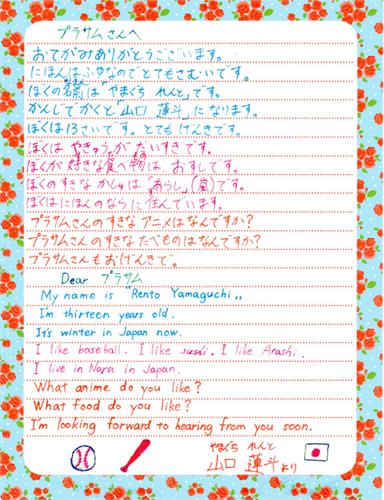 プラサムさんへ
おてがみありがとうございます。
にほんはふゆなのでとてもさむいです。
ぼくの名前は"やまぐち れんと"です。
かんじでかくと「山口 蓮斗」になります。
ぼくは13さいです。とてもげんきです。
ぼくは やきゅうが だいすきです。
ぼくが 好きな食べ物は、おすしです。
ぼくのすきな かしゅは「あらし」(嵐)です。
ぼくはにほんのならに 住んでいます。
プラサムさんのすきな アニメはなんですか?
プラサムさんのすきな たべものはなんですか?
プラサムさんもおげんきで。
Dear プラサム
My name is "Rento Yamaguchi„
I'm thirteen years old.
It's winter in Japan now.
I like baseball. I like sushi. I like Arashi.
I live in Nara in Japan.
What anime do you like?
What food do you like?
I'm looking forward to hearing from you soon.
やまぐち れんと
山口 蓮斗より